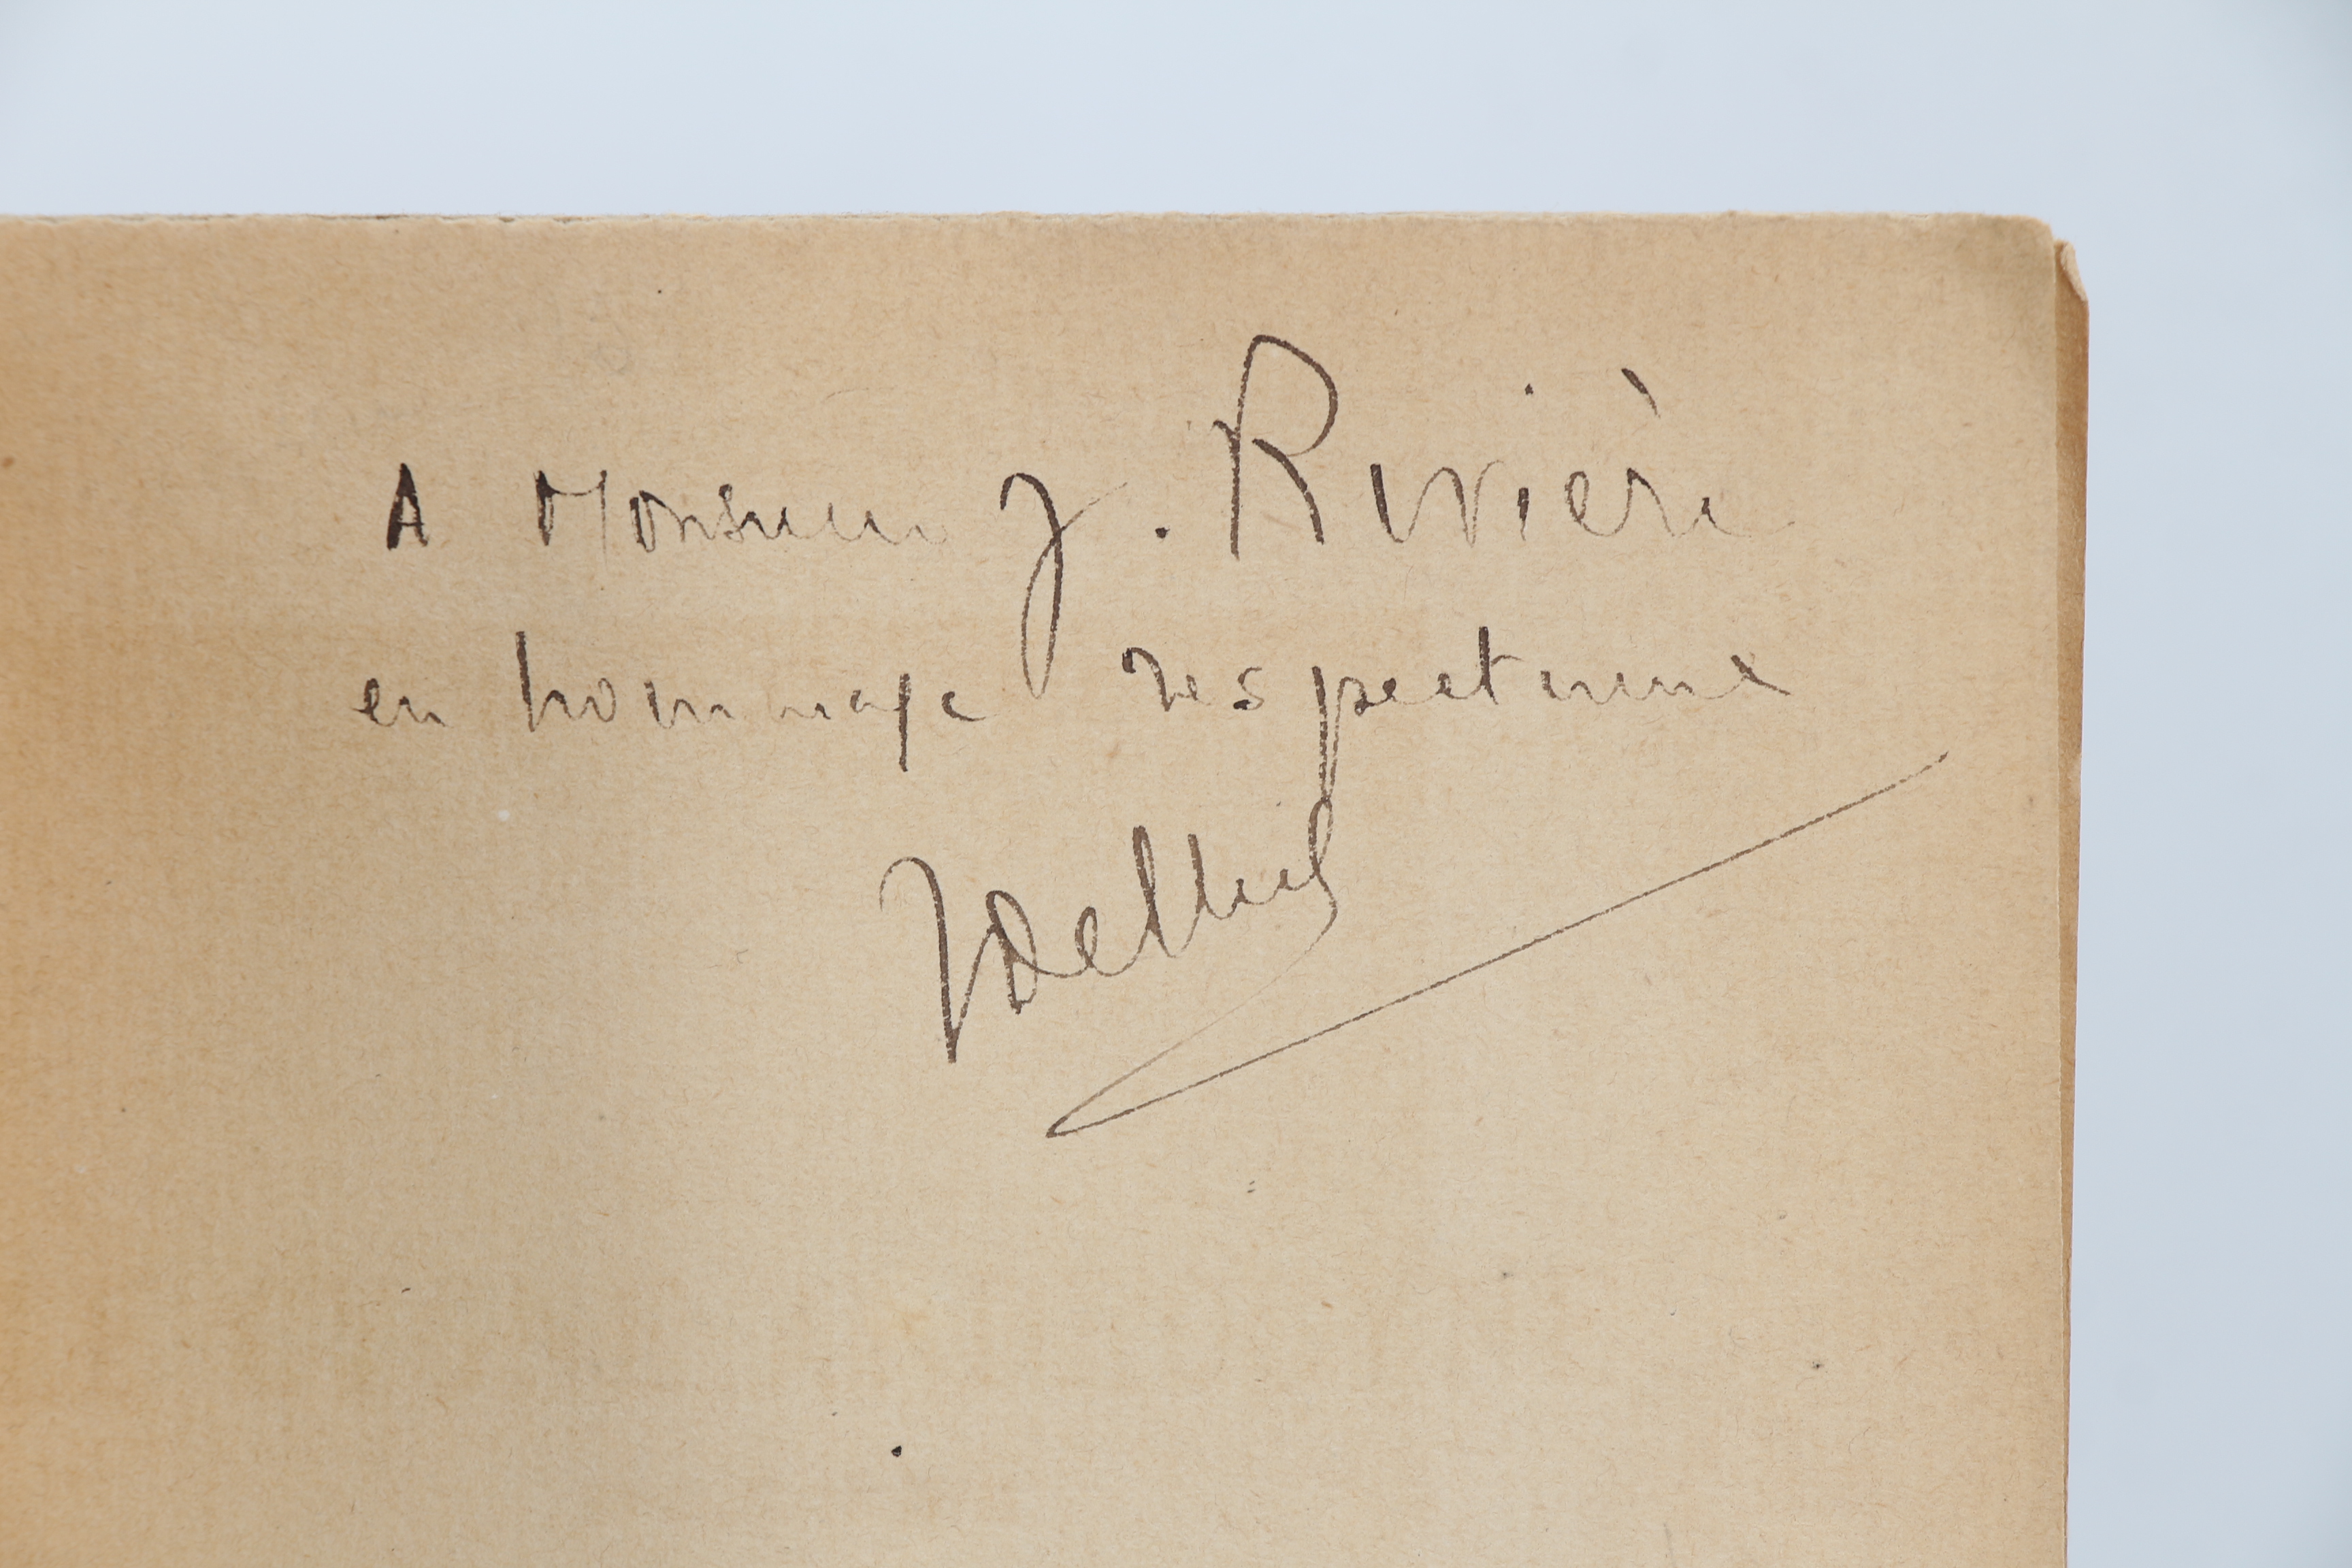 A Monsieur J. Rivière
en hommage respectueux
JDelteil